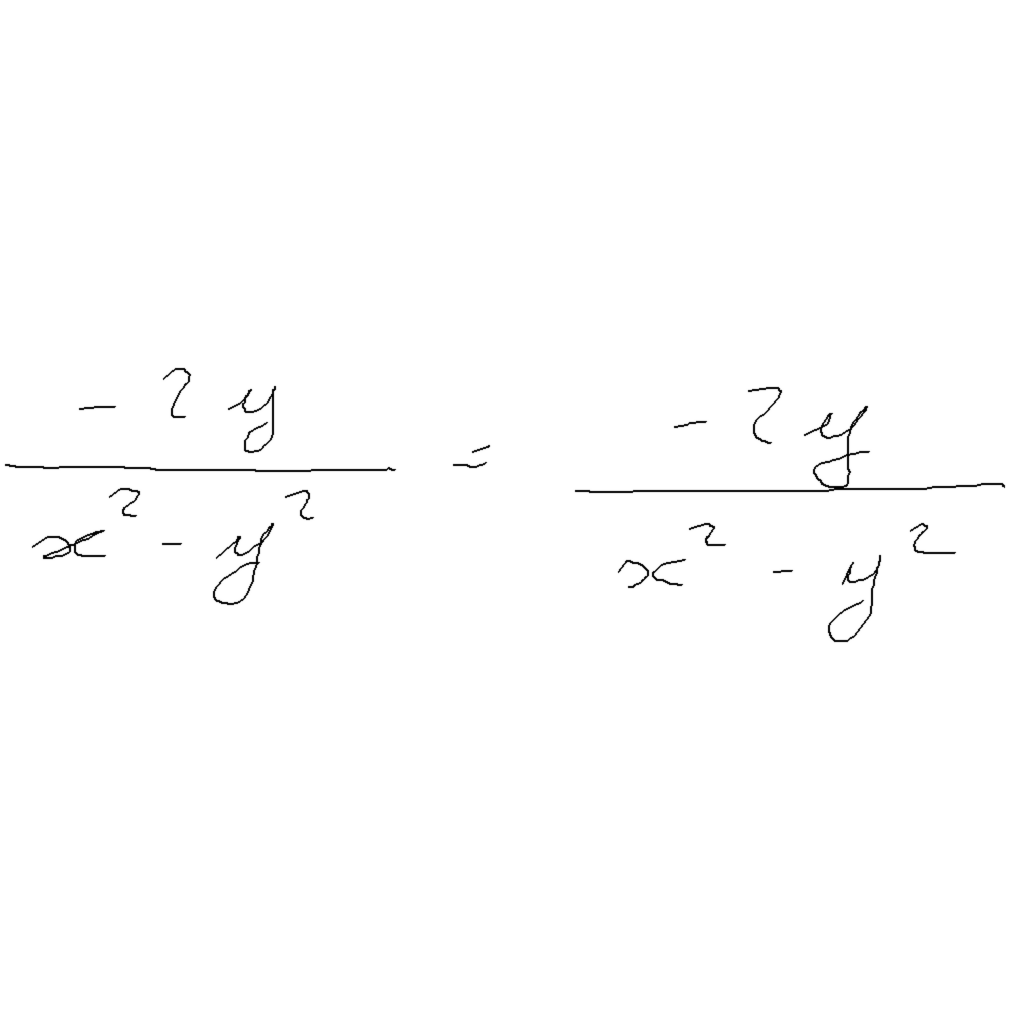 \frac{-2y}{x^2-y^2} = \frac{-2y}{x^2-y^2}